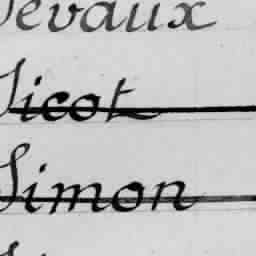 evaux
Sicot
Simon